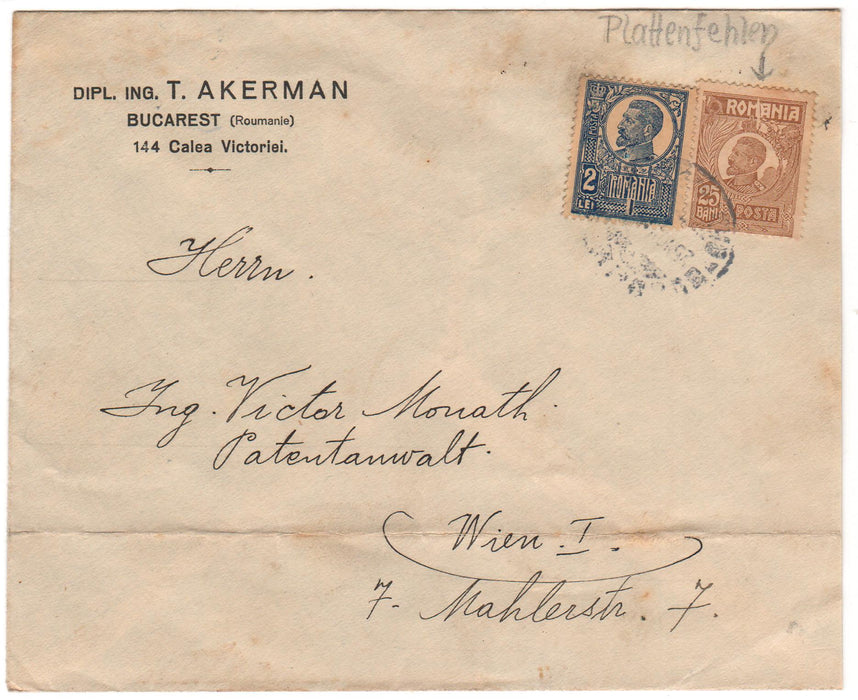 Plattenfehler
DIPL. ING. T. AKERMAN
BUCAREST (Roumanie)
144 Calea Victoriei.
POSTA
2
LEI
ROMANIA
ROMANIA
25
BANI
POSTA
Herrn.
Ing. Victor Monath.
Patentanwalt.
Wien. I.
7. Mahlerstr. 7.